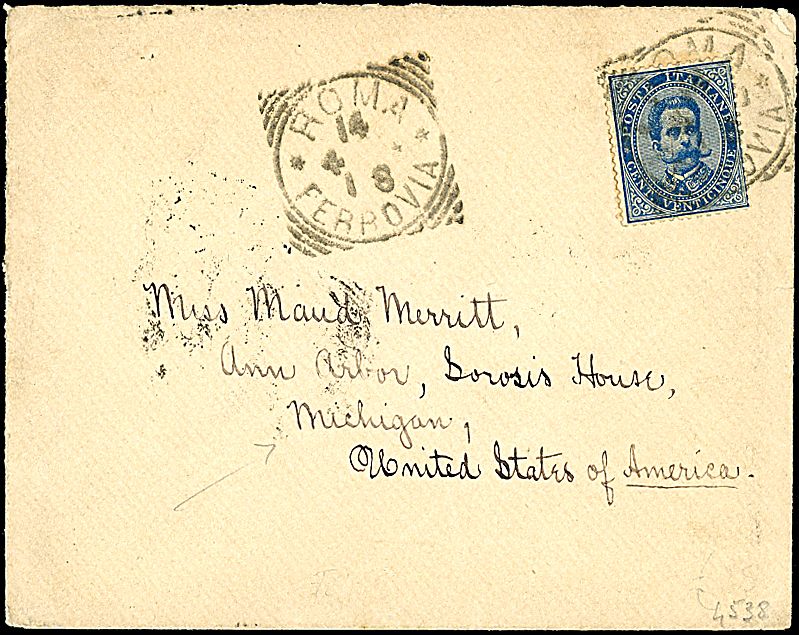 ROMA
14
4
1 8
FERROVIA
ROMA
POSTE ITALIANE
CENT. VENTICINQUE
Miss Maud Merritt,
Ann Arbor, Sorosis House,
Michigan,
United States of America.
4538